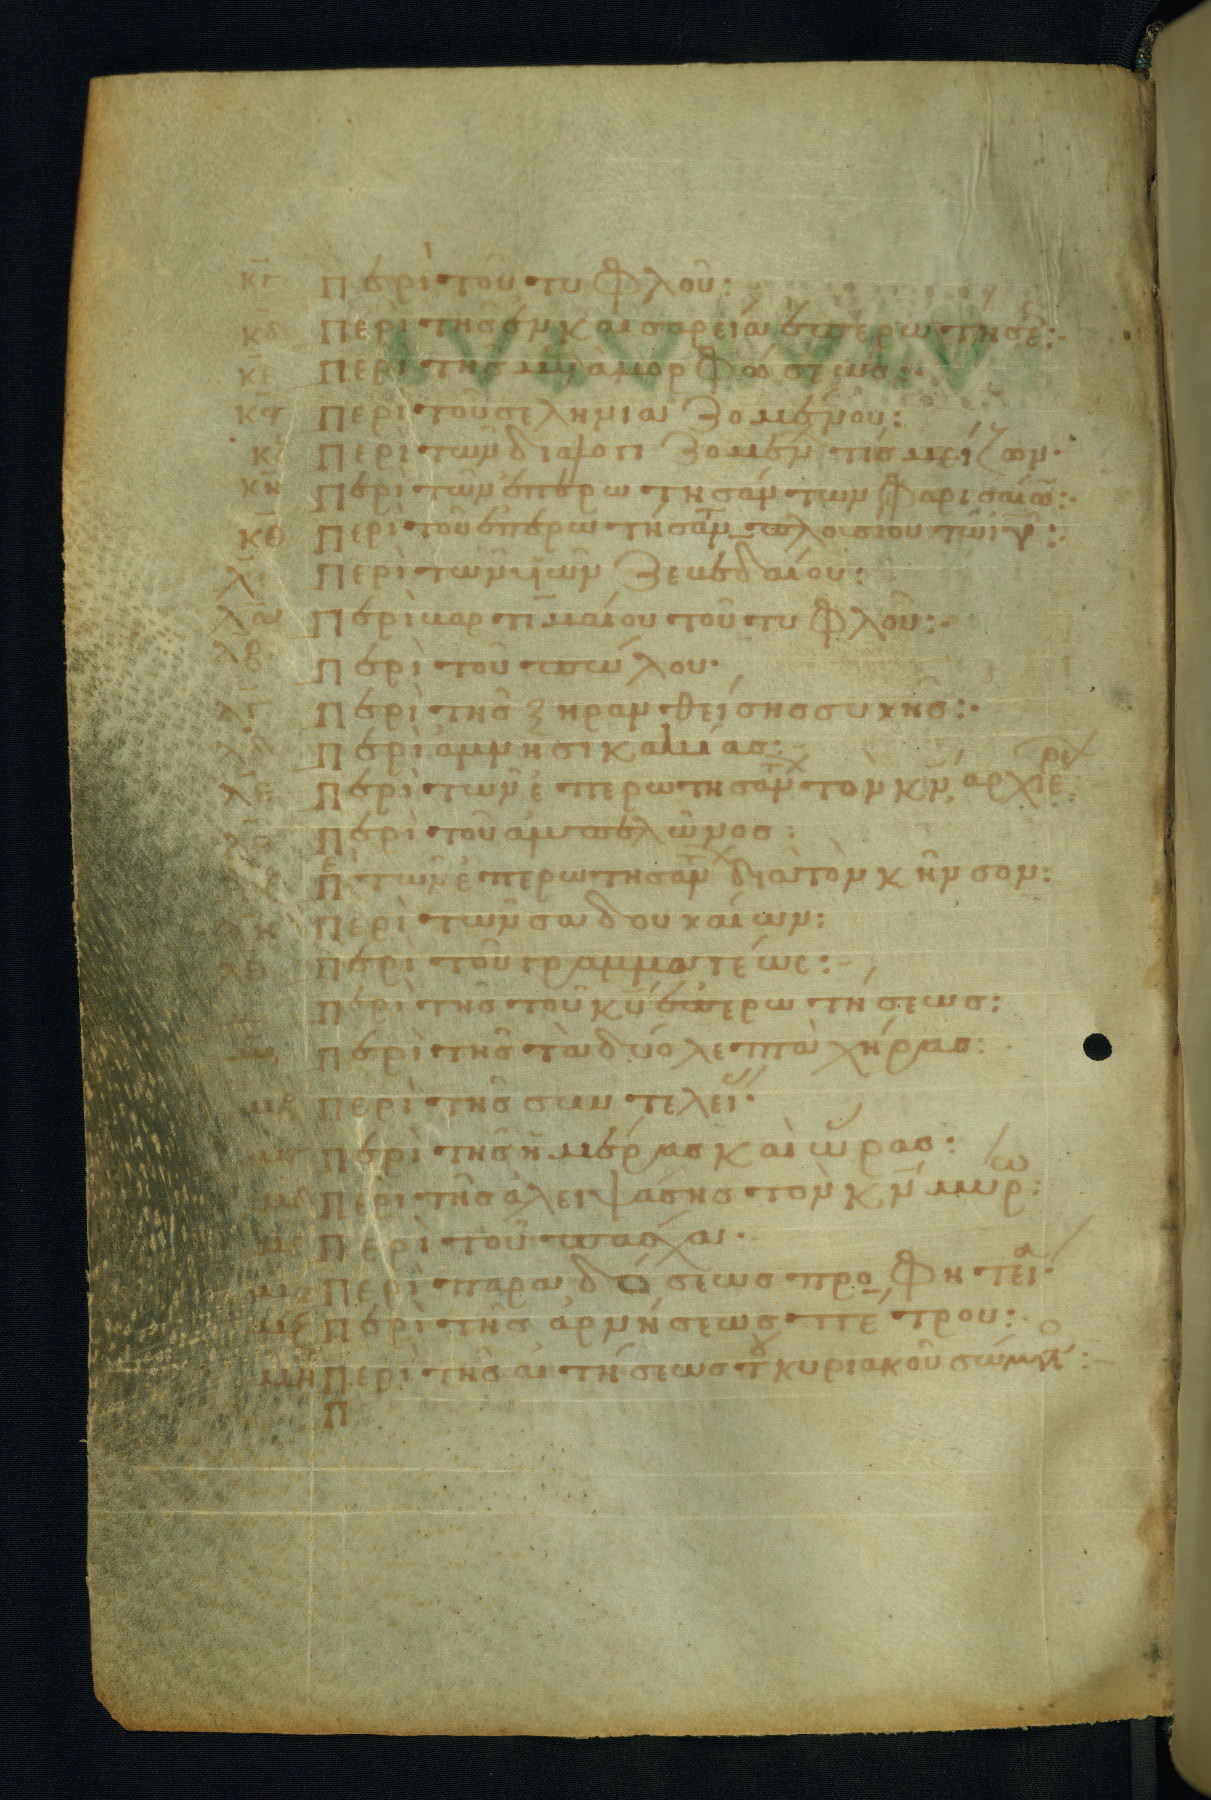 κγ Περὶ τοῦ τυφλοῦ:
κδ Περὶ τῆς ἐν Καισαρείαι ἐπερωτήσε:
κε Περὶ τῆς μεταμορφώσεως:
κς Περὶ τοῦ σεληνιαζομένου:
κζ Περὶ τῶν διαλογιζομέν τίς μείζων·
κη Περὶ τῶν ἐπερωτησάντων Φαρισαίω:
κθ Περὶ τοῦ ἐπερωτήσαντ πλουσίου τὸν ιν:
λ Περὶ τῶν ϋῶν Ζεβεδαίου:
λα Περὶ Βαρτιμαίου τοῦ τυφλοῦ:
λβ Περὶ τοῦ πώλου·
λγ Περὶ τῆς ξηρανθείσης συκῆς:
λδ Περὶ ἀμνησικακίας:
λε Περὶ τῶν ἐπερωτησάντ τὸν κν ἀρχιερε
λς Περὶ τοῦ ἀμπελῶνος:
λζ Πε τῶν ἐπερωτησάντ διὰ τὸν κῆνσον:
λη Περὶ τῶν Σαδουκαίων:
λθ Περὶ τοῦ γραμματέως:
Περὶ τῆς τοῦ κυ ἐπερωτήσεως:
μα Περὶ τῆς τὰ δύο λεπτὰ χήρας:
μβ Περὶ τῆς συντελεί·
μγ Περὶ τῆς ἡμέρας καὶ ὥρας:
μδ Περὶ τῆς ἀλειψάσης τὸν κν μύρω:
με Περὶ τοῦ πάσχα·
μς Περὶ παραδόσεως προφητεία·
μζ Περὶ τῆς ἀρνήσεως Πέτρου:
μη Περὶ τῆς αἰτήσεως τοῦ κυριακοῦ σώμα:
Π